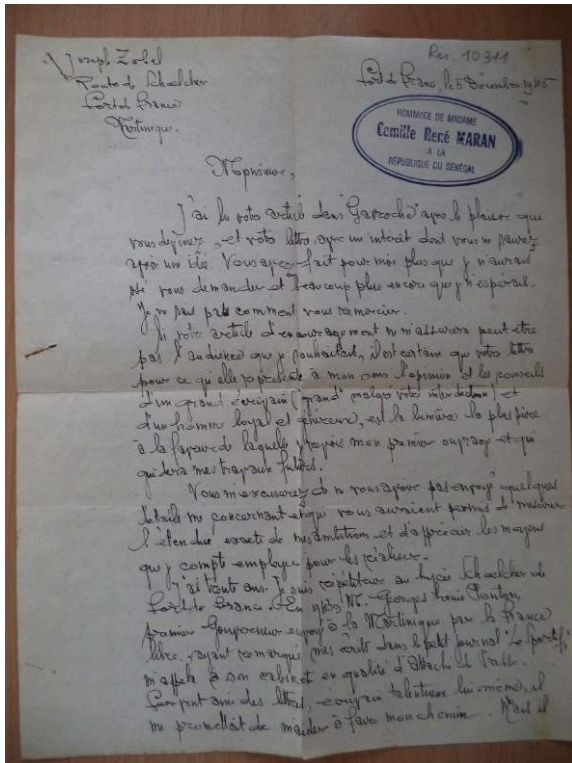 Res. 10311
Joseph Zobel
Route de Schoelcher
Fort de France
Martinique.
Fort de France, le 5 Décembre 1945
HOMMAGE DE MADAME
Camille René MARAN
A LA
RÉPUBLIQUE DU SÉNÉGAL
Monsieur,
J'ai lu votre article dans "Gavroche" avec le plaisir que
vous devinez, et votre lettre, avec un intérêt dont vous ne pouvez
avoir une idée. Vous avez fait pour moi plus que je n'aurais
osé vous demander et beaucoup plus encore que je n'espérais.
Je ne sais pas comment vous remercier.
Si votre article d'encouragement ne m'assurera peut-être
pas l'audience que je souhaitais, il est certain que votre lettre
pour ce qu'elle représente à mon sens l'opinion et les conseils
d'un grand écrivain ("grand" malgré votre interdiction) et
d'un homme loyal et généreux, est la lumière la plus
à la faveur de laquelle je mon premier ouvrage et qui
guidera mes travaux futurs.
Vous m'excuserez de ne vous avoir pas envoyé quelques
détails me concernant et qui vous auraient permis de mesurer
l'étendue exacte de mes ambitions et d'apprécier les moyens
que je compte employer pour les réaliser.
J'ai trente ans. Je suis répétiteur au lycée Schoelcher de
Fort de France. En M. Georges Louis Ponton,
premier Gouverneur envoyé à la Martinique par la France
libre, ayant remarqué mes écrits dans le petit journal "Le Sportif",
m'appela à son cabinet en qualité d'attaché de Presse.
Fervent ami des lettres, écrivain talentueux lui-même, il
me promettait de m'aider à faire mon chemin. Mais il